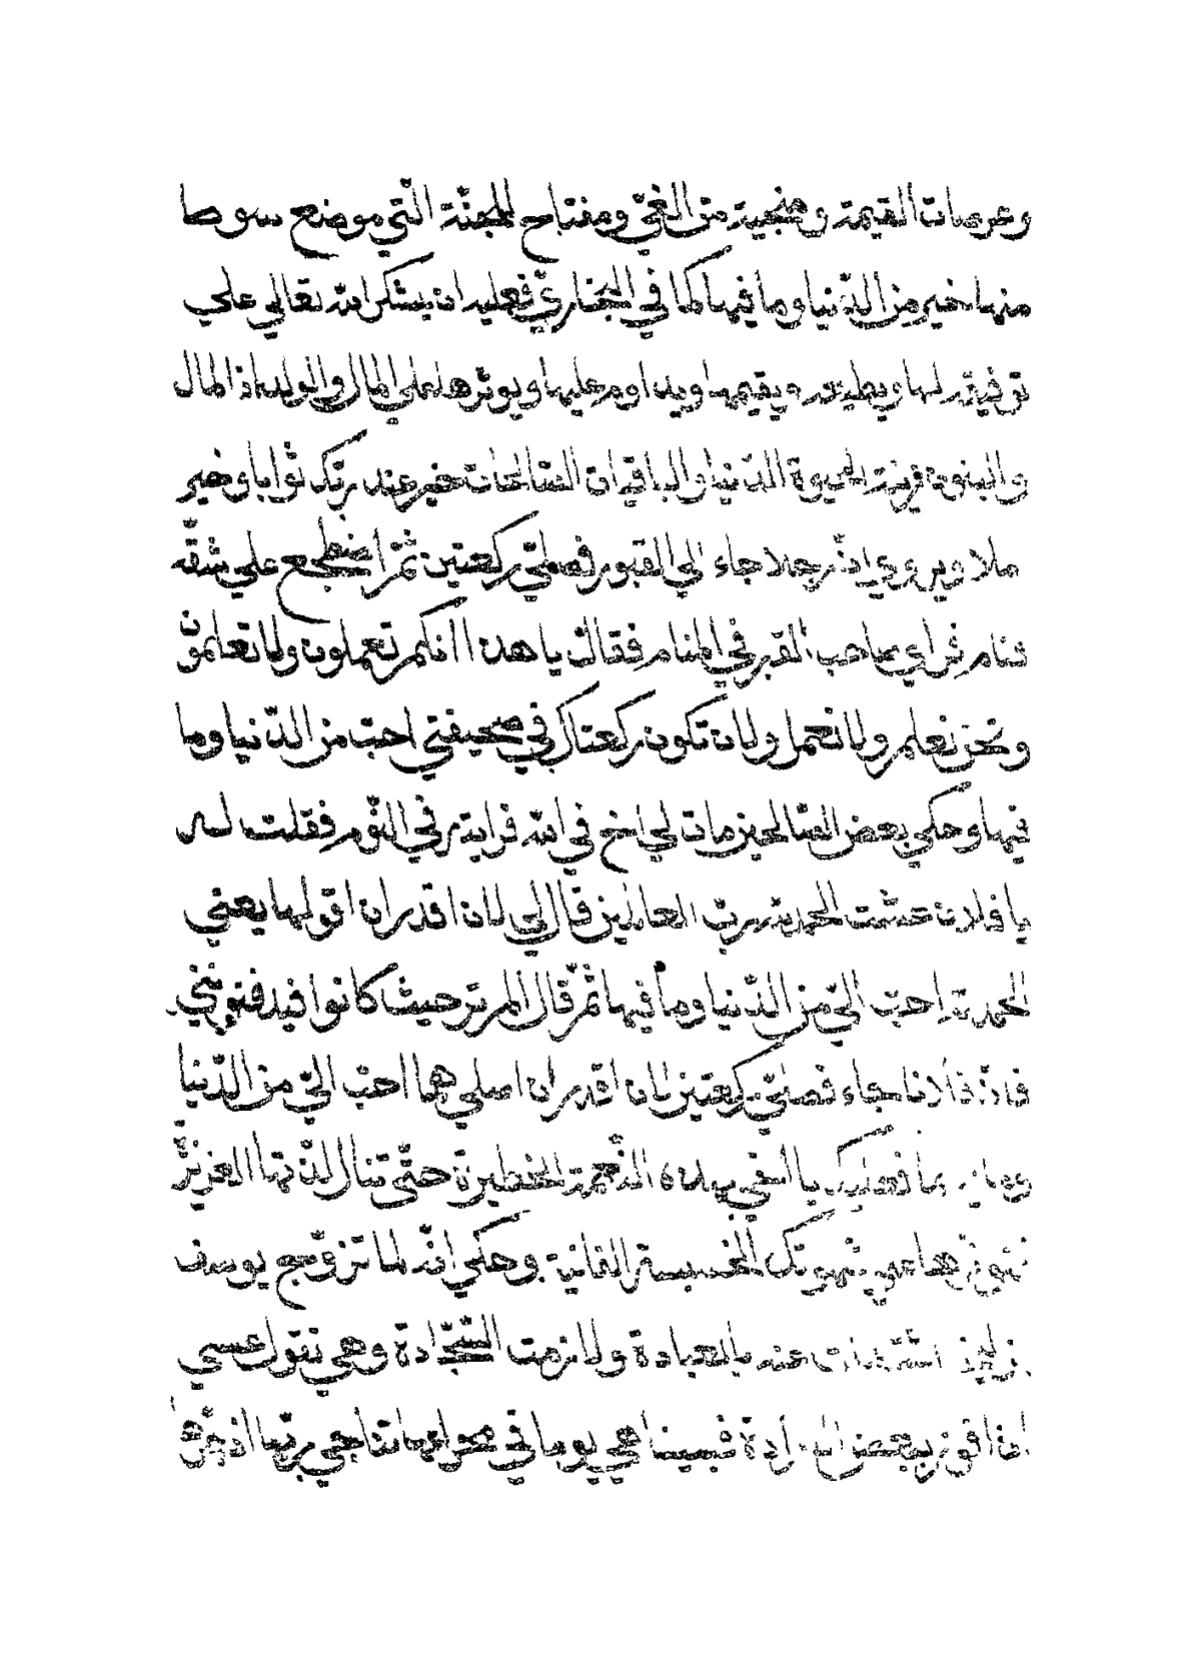 وعرصات القيمة ومنجية من الغيّ ومفتاح للجنّة الّتي موضع سوط
منها خير من الدّنيا وما فيها كما في البخاريّ فعليه ان يشكر الله تعالي علي
توفيقه لها ويقيمها ويداوم عليها ويوثرها علي المال والولد اذ المال
والبنون زينة الحيوة الدّنيا والباقيات الصّالحات خير عند ربّك ثوابا وخير
املا ويروي انّ رجلا جاء الي القبور فصلّي ركعتين ثمّ اضطجع علي شقّه
فنام فراي صاحب القبر في المنام فقال يا هذا انكم تعملون ولا تعلمون
ونحن نعلم ولا نعمل ولان تكون ركعتاك في صحيفتي احبّ من الدّنيا وما
فيها وحكي بعض الصّالحين مات لي اخ في الله فرايته في النّوم فقلت له
يا فلان عشت الحمد لله ربّ العالمين قال لي لان اقدر ان اقولها يعني
الحمد لله احبّ اليّ من الدّنيا وما فيها ثمّ قال الم تر حيث كانوا
فانّ فلانا جاء فصلّي ركعتين لان اقدر ان اصلي هما احبّ اليّ من الدّنيا
وما فيها فعليك يا اخي بهذه النّعمة الخطيرة حتّي تنال لذّتها العزيزة
علي شهوتك الخسيسة الفانية وحكي انّه لما تزوّج يوسف
زليخا عنده بالعبادة ولازمت السّجّادة وهي تقول عسي
ان افوز ببعض فبينا هي يوما في محرابها تناجي ربّها اذ